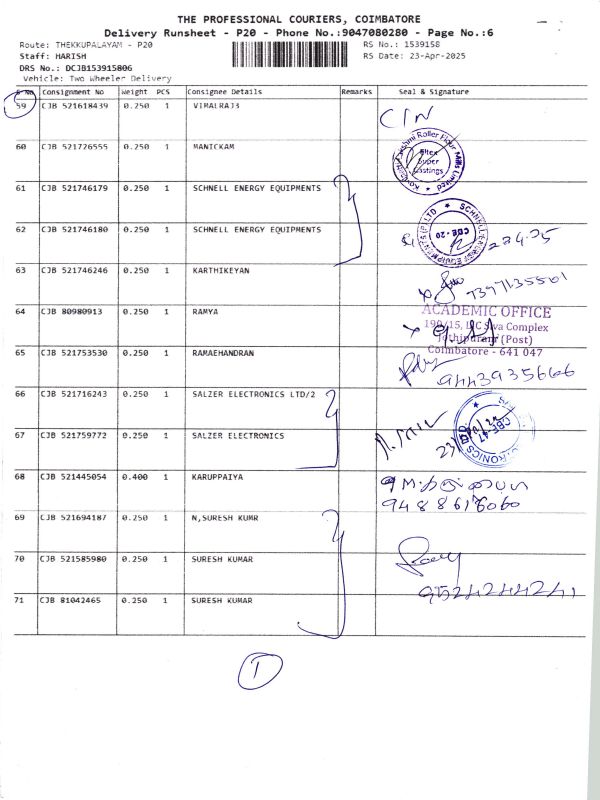 THE PROFESSIONAL COURIERS, COIMBATORE
Delivery Runsheet - P20 - Phone No.:9047080280 - Page No.:6
Route: THEKKUPALAYAM - P20 RS No.: 1539158
Staff: HARISH RS Date: 23-Apr-2025
DRS No.: DCJB153915806
Vehicle: Two Wheeler Delivery
S No Consignment No Weight PCS Consignee Details Remarks Seal & Signature
59 CJB 521618439 0.250 1 VIMALRAJ3
60 CJB 521726555 0.250 1 MANICKAM
Roller Flour Mills Limited
61 CJB 521746179 0.250 1 SCHNELL ENERGY EQUIPMENTS
62 CJB 521746180 0.250 1 SCHNELL ENERGY EQUIPMENTS
SCHNELL ENERGY EQUIPMENTS (P) LTD
CBE-20
63 CJB 521746246 0.250 1 KARTHIKEYAN
7397135501
64 CJB 80980913 0.250 1 RAMYA
ACADEMIC OFFICE
Complex
(Post)
Coimbatore - 641 047
65 CJB 521753530 0.250 1 RAMAEHANDRAN
9443935666
66 CJB 521716243 0.250 1 SALZER ELECTRONICS LTD/2
67 CJB 521759772 0.250 1 SALZER ELECTRONICS
CBE-47
68 CJB 521445054 0.400 1 KARUPPAIYA
9488618060
69 CJB 521694187 0.250 1 N,SURESH KUMR
70 CJB 521585980 0.250 1 SURESH KUMAR
71 CJB 81042465 0.250 1 SURESH KUMAR
9524244241
1